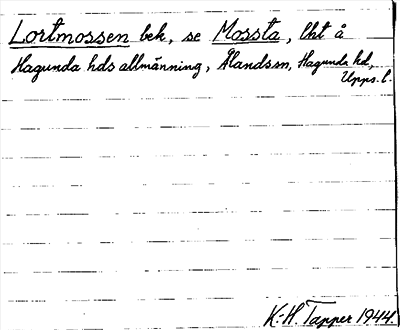 Lortmossen bek, se Mossta, lht å
Hagunda hds allmänning, Ålandssn, Hagunda hd,
Upps. l.
K.-H. Tapper 1944.